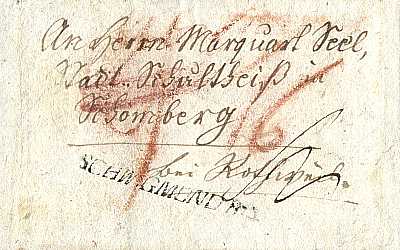 An Herrn Marquart Seel,
Stadt-Schultheiß in
Schömberg
bei Rothweil.
SCHW:GMÜND